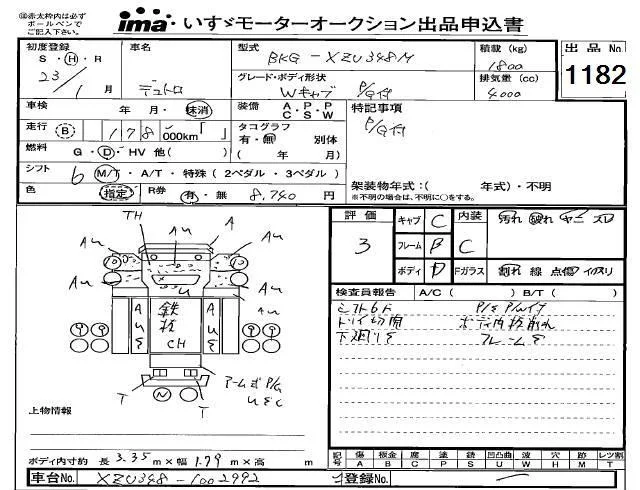 ㊟赤太枠内は必ず
ボールペンで
ご記入下さい。
ima いすゞモーターオークション出品申込書
初度登録 S・H・R 23/1月
車名 デュトロ
型式 BKG-XZU348M
積載(kg) 1800
出品No. 1182
グレード・ボディ形状 Wキャブ P/G付
排気量(cc) 4000
車検 年 月・抹消
装備 A・P・P C・S・W
特記事項 P/G付
走行 B 178,000km「 」
タコグラフ 有・無 別体 ( 年 月)
燃料 G・D・HV 他( )
シフト 6 M/T・A/T・特殊(2ペダル・3ペダル)
色 指定 R券 有・無 8,740円
架装物年式:( 年式)・不明
※不明の場合は、不明に○をする。
評価 3
キャブ C 内装 C 汚れ 破れ ヤニ スレ
フレーム B
ボディ D Fガラス 割れ 線 点傷 イスリ
検査員報告 A/C( ) B/T( )
シフト6F P/S P/Wイタ
下廻りS フレームS
TH A
AU AU AU AU AU
鉄板 CH
T N T
アームボ P/G
上物情報
ボディ内寸約 長 3.35m×幅 1.79m×高 m
記号 傷A 板金B 腐C 塗P 錆S 凹凸曲U 波W 穴H 跡M レツ割T
車台No. XZU348-1002992
登録No.